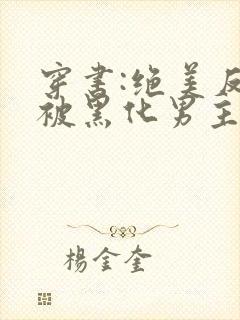 穿书:绝美反
被黑化男主
杨金奎